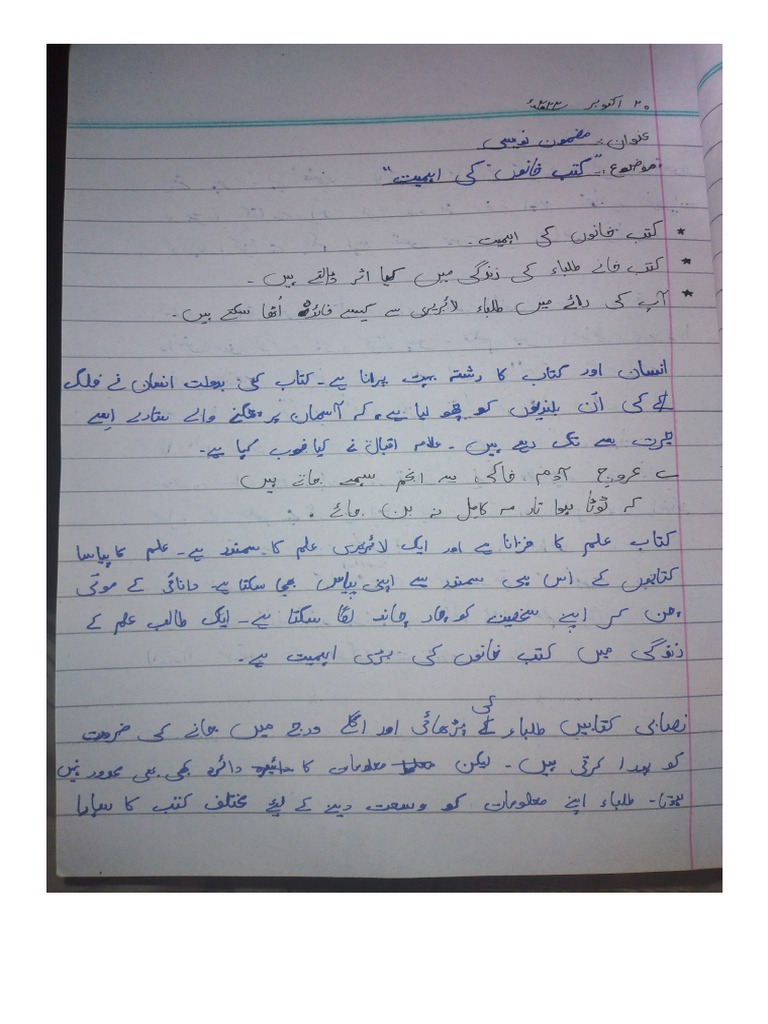 ۲۰ اکتوبر
عنوان:۔ مضمون نویسی
موضوع:۔ "کتب خانوں کی اہمیت"
* کتب خانوں کی اہمیت۔
* کتب خانے طلباء کی زندگی میں کیا اثر ڈالتے ہیں۔
* آپ کی رائے میں طلباء لائبریری سے کیسے فائدہ اُٹھا سکتے ہیں۔
انسان اور کتاب کا رشتہ بہت پرانا ہے۔ کتاب کی بدولت انسان نے فلک
کی اُن بلندیوں کو چھو لیا ہے، کہ آسمان پر چمکنے والے ستارے اِسے
حیرت سے تک رہے ہیں۔ علامہ اقبال نے کیا خوب کہا ہے۔
؎ عروج آدم خاکی سے انجم سہمے جاتے ہیں
کہ ٹوٹا ہوا تارہ مہ کامل نہ بن جائے
کتاب علم کا خزانا ہے اور ایک لائبریری علم کا سمندر ہے۔ علم کا پیاسا
کتابوں کے اس ہی سمندر سے اپنی پیاس بجھا سکتا ہے۔ دانائی کے موتی
چن کر اپنے شخصیت کو چار چاند لگا سکتا ہے۔ ایک طالب علم کے
زندگی میں کتب خانوں کی بڑی اہمیت ہے۔
نصابی کتابیں طلباء کی پڑھائی اور اگلے درجے میں جانے کی ضرورت
کو پورا کرتی ہیں۔ لیکن معلومات کا دائرہ کبھی بھی محدود نہیں
ہوتا۔ طلباء اپنے معلومات کو وسعت دینے کے لیئے مختلف کتب کا سہارا